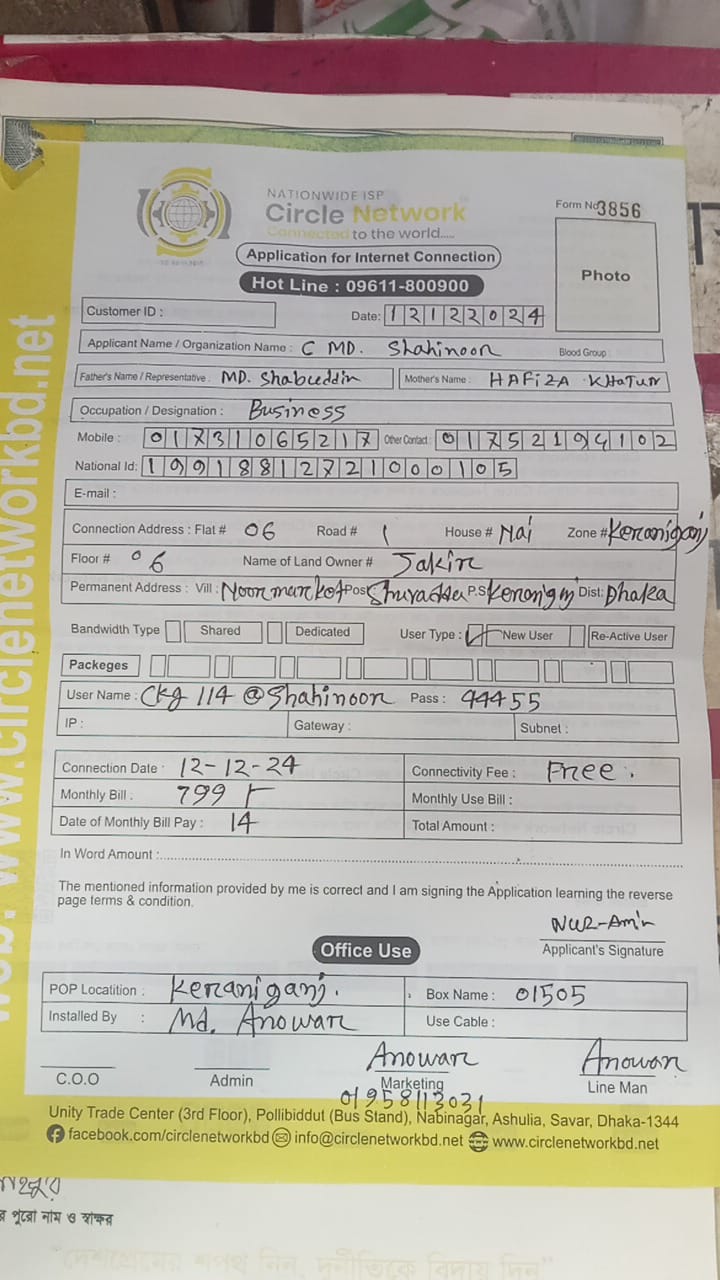 NATIONWIDE ISP
Circle Network
Connected to the world.....
Form No 3856
Application for Internet Connection
Hot Line : 09611-800900
Photo
Customer ID :
Date: 12122024
Applicant Name / Organization Name : C MD. Shahinoon
Blood Group :
Father's Name / Representative : MD. Shabuddin
Mother's Name : HAFiZA KHaTUN
Occupation / Designation : Business
Mobile : 01731065217 Other Contact : 01752194102
National Id: 19918812721000105
E-mail :
Connection Address : Flat # 06 Road # 1 House # Nai Zone # Keraniganj
Floor # 06 Name of Land Owner # Sakin
Permanent Address : Vill : Noor market Post P.S Dist: Dhaka
Bandwidth Type Shared Dedicated User Type : New User Re-Active User
Packeges
User Name : Ckg 114 @ Shahinoon Pass : 44455
IP : Gateway : Subnet :
Connection Date : 12-12-24 Connectivity Fee : Free .
Monthly Bill : 799 Monthly Use Bill :
Date of Monthly Bill Pay : 14 Total Amount :
In Word Amount :
The mentioned information provided by me is correct and I am signing the Application learning the reverse
page terms & condition.
NUR-Amin
Applicant's Signature
Office Use
POP Locatition : Keraniganj. Box Name : 01505
Installed By : Md. Anowar Use Cable :
Anowar Anowar
C.O.O Admin Marketing Line Man
01958113031
Unity Trade Center (3rd Floor), Pollibiddut (Bus Stand), Nabinagar, Ashulia, Savar, Dhaka-1344
facebook.com/circlenetworkbd info@circlenetworkbd.net www.circlenetworkbd.net
web: www.circlenetworkbd.net
র পুরো নাম ও স্বাক্ষর
"দেশপ্রেমের শপথ নিন, দুর্নীতিকে বিদায় দিন"